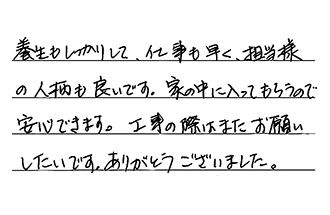 養生もしっかりして、仕事も早く、担当様
の人柄も良いです。家の中に入ってもらうので
安心できます。工事の際はまたお願い
したいです。ありがとうございました。